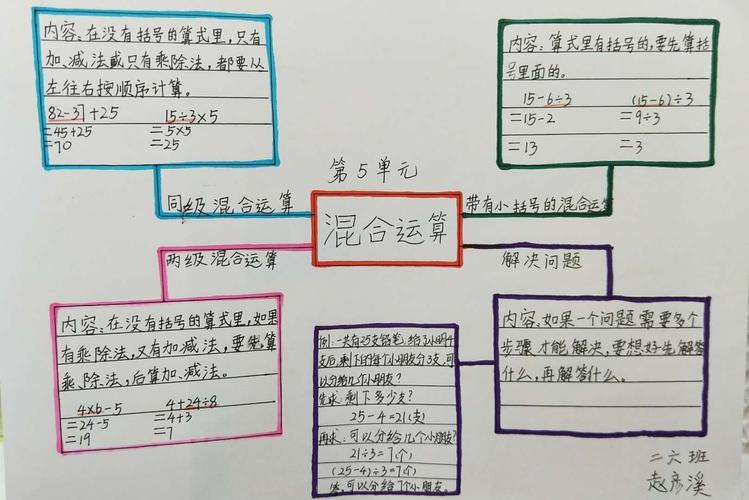 内容:在没有括号的算式里,只有
加、减法或只有乘除法,都要从
左往右按顺序计算。
82-37+25 15÷3×5
=45+25 =5×5
=70 =25
内容:算式里有括号的,要先算括
号里面的。
15-6÷3 (15-6)÷3
=15-2 =9÷3
=13 =3
第5单元
混合运算
同级混合运算
带有小括号的混合运算
两级混合运算
解决问题
内容:在没有括号的算式里,如果
有乘除法,又有加减法,要先算
乘、除法,后算加、减法。
4×6-5 4+24÷8
=24-5 =4+3
=19 =7
例:一共有25支铅笔,给了小明4
支后,剩下的每个小朋友分3支,可
以分给几个小朋友?
先求:剩下多少支?
25-4=21(支)
再求:可以分给几个小朋友?
21÷3=7(个)
(25-4)÷3=7(个)
答:可以分给7个小朋友。
内容:如果一个问题需要多个
步骤才能解决,要想好先解答
什么,再解答什么。
二六班
赵彦溪